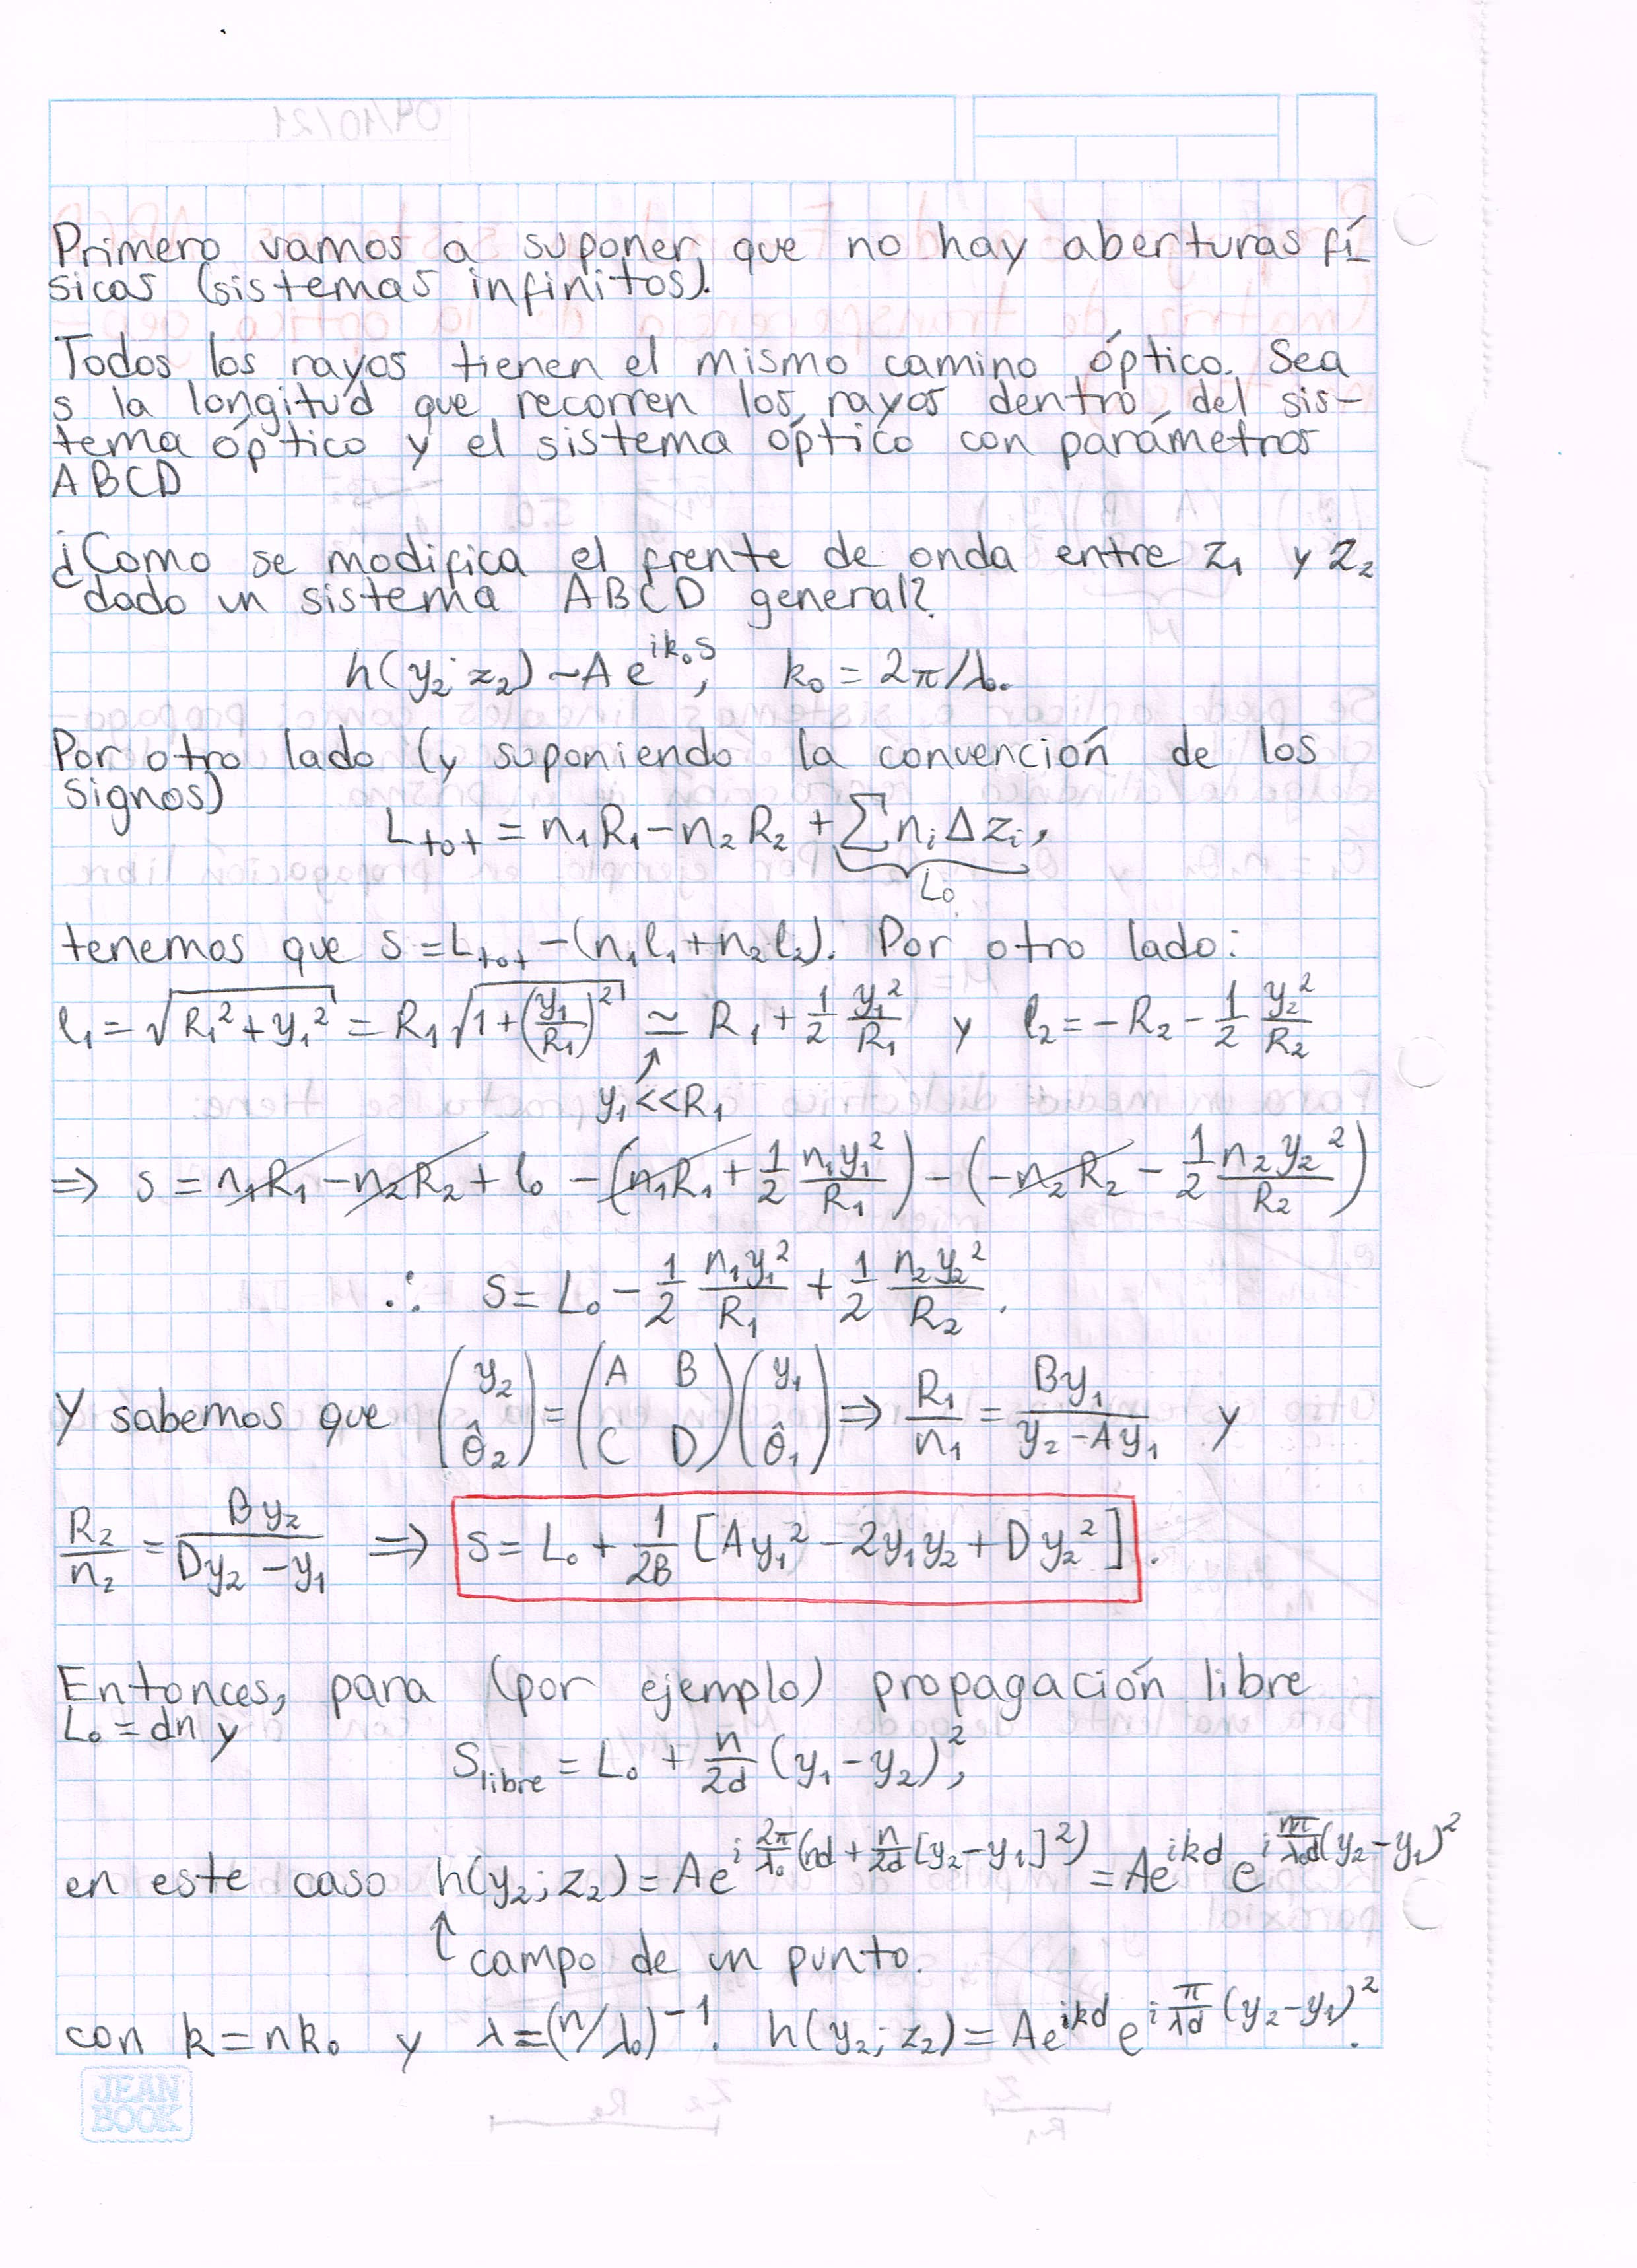 Primero vamos a suponer que no hay aberturas fí
sicas (sistemas infinitos).
Todos los rayos tienen el mismo camino óptico. Sea
s la longitud que recorren los rayos dentro del sis-
tema óptico y el sistema óptico con parámetros
ABCD
¿Como se modifica el frente de onda entre z₁ y z₂
dado un sistema ABCD general?
h(y₂; z₂) ~ A e^{ik₀s}, k₀ = 2π/λ₀.
Por otro lado (y suponiendo la convención de los
signos)
L_{tot} = n₁R₁ - n₂R₂ + ∑nᵢΔzᵢ,
L₀
tenemos que s = L_{tot} - (n₁l₁ + n₂l₂). Por otro lado:
l₁ = √(R₁² + y₁²) = R₁√(1 + (y₁/R₁)²) ≃ R₁ + 1/2 y₁²/R₁ y l₂ = -R₂ - 1/2 y₂²/R₂
↑
y₁ << R₁
⇒ s = n₁R₁ - n₂R₂ + l₀ - (n₁R₁ + 1/2 n₁y₁²/R₁) - (-n₂R₂ - 1/2 n₂y₂²/R₂)
∴ s = L₀ - 1/2 n₁y₁²/R₁ + 1/2 n₂y₂²/R₂.
Y sabemos que (y₂ θ̂₂) = (A B C D)(y₁ θ̂₁) ⇒ R₁/n₁ = By₁/(y₂ - Ay₁) y
R₂/n₂ = By₂/(Dy₂ - y₁) ⇒ s = L₀ + 1/2B [Ay₁² - 2y₁y₂ + Dy₂²].
Entonces, para (por ejemplo) propagación libre
L₀ = dn y
S_{libre} = L₀ + n/2d (y₁ - y₂)²,
en este caso h(y₂; z₂) = Ae^{i 2π/λ₀ (nd + n/2d [y₂ - y₁]²)} = Ae^{ikd} e^{i nπ/λ₀d (y₂ - y₁)²}
↑ campo de un punto.
con k = nk₀ y λ = (n/λ₀)⁻¹. h(y₂; z₂) = Ae^{ikd} e^{i π/λd (y₂ - y₁)²}.
JEAN
BOOK